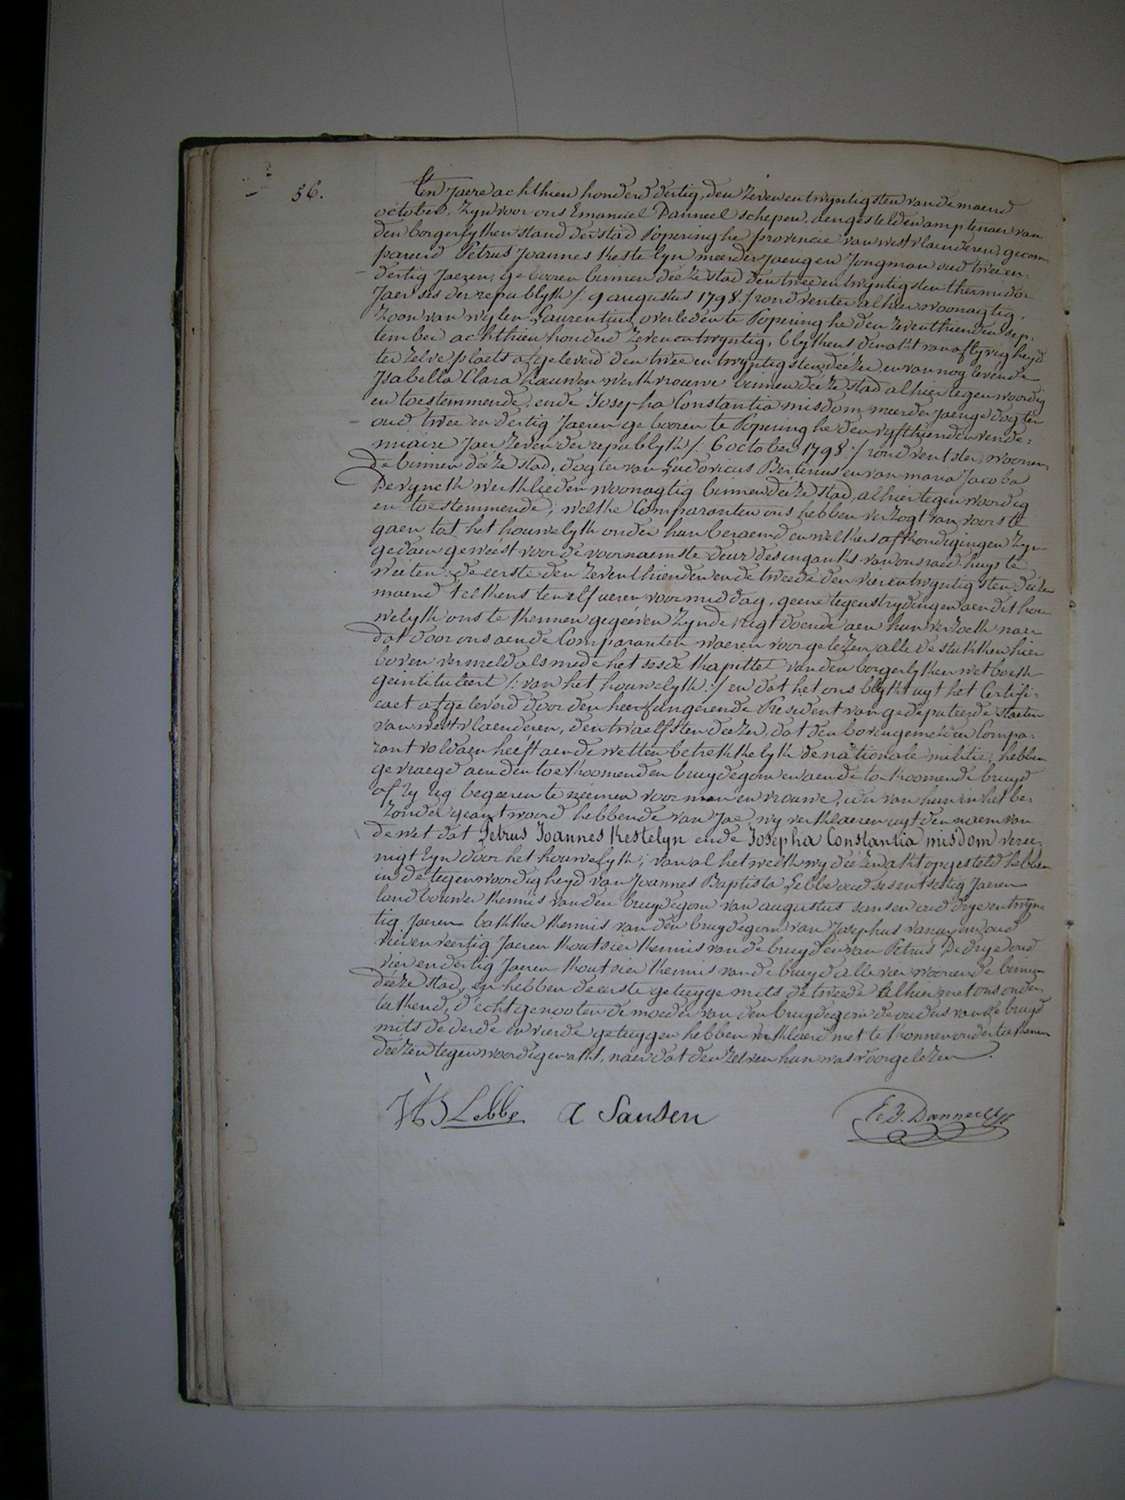 56.
Ten Jaere achthien honderd dertig, den Zevenentwyntigsten van de maend
october, Zyn voor ons Emanuel Danneel schepen, aengestelden amptenaer van
den borgerlyken stand der stad Poperinghe provincie van westvlaenderen, gecom-
pareerd Petrus Joannes Kestelyn meerderjaerigen Jongman oud twee en
dertig Jaeren, gebooren binnen deeze stad den twee en twyntigsten thermidor
Jaer ses der republyk /: 9 augustus 1798 :/ rondventer alhier woonagtig,
Zoon van wylen Laurentius, overleden te Poperinghe den Zeventhienden sep-
tember achthien honderd Zevenentwyntig, blykens den akt van aflyvigheyd
ter Zelve plaets afgeleverd den twee en twyntigsten deezer, en van nog levende
Isabella Clara werkvrouwe binnen deeze stad alhier tegenwoordig
en toestemmende, ende Josepha Constantia misdom meerderjaerige dogter
oud twee en dertig Jaeren gebooren te Poperinghe den vyfthienden vende-
miaire Jaer Zeven der republyk /: 6 october 1798 :/ rondventster, woonen-
de binnen deeze stad, dogter van Ludovicus Bertinus en van maria Jacoba
werklieden woonagtig binnen deeze stad, alhier tegenwoordig
en toestemmende; welke Comparanten ons hebben verzogt van voorts te
gaen tot het houwelyk onder hun beraemd en welkers afkondigingen Zyn
gedaen geweest voor de voornaemste deur des ingangs van ons raed-huys te
weeten: de eerste den Zeventhienden en de tweede den vierentwyntigsten deezer
maend telkens ten elf ueren voormiddag, geene tegenstrydingen aen dit hou-
welyk ons te kennen gegeeven Zynde, regt doende aen hun verzoek naer
dat door ons aen de Comparanten waeren voorgelezen alle de stukken hier
boven vermeld als mede het sesde kapittel van den borgerlyken wetboek
geintituleert /: van het houwelyk :/ en dat het ons blykt uyt het Certifi-
caet afgeleverd door den heer fungerende President van gedeputeerde staeten
van westvlaenderen, den twaelfsten deezer, dat den bovengemelden Compa-
rant voldaen heeft aen de wetten betrekkelyk de nationale militie; hebben
gevraegd aen den toekoomenden bruydegom en aen de toekoomende bruyd
of zy zig begeeren te neemen voor man en vrouwe, ider van hun in het be-
zonder geantwoord hebbende van Jae, wy verklaeren uyt den naem van
de wet dat Petrus Joannes Kestelyn ende Josepha Constantia misdom veree-
nigt Zyn door het houwelyk; van al het welk wy deezen akt opgesteld hebben
in de tegenwoordigheyd van Joannes Baptista Lebbe oud ses en sestig Jaeren
landbouwer kennis van den bruydegom van augustus sansen oud dryentwyn-
tig Jaeren bakker kennis van den bruydegom van Josephus oud
vier en veertig Jaeren houtsier kennis van de bruyd en van Petrus Dedrye oud
vier en dertig Jaeren houtsier kennis van de bruyd alle vier woonende binnen
deeze stad, en hebben de eerste getuyge mits de tweede alhier met ons onder-
teekend, d'echtgenooten de moeder van den bruydegom de ouders van de bruyd
mits de derde en vierde getuygen hebben verklaerd niet te konnen onderteekenen
deezen tegenwoordigen akt, naer dat den zelven hun was voorgelezen.
JB Lebbe A Sansen E. J. Danneel